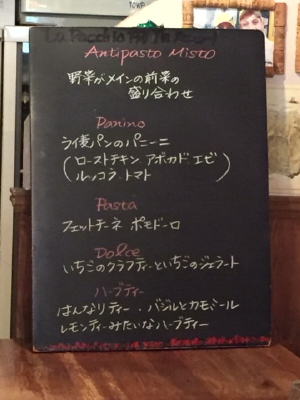 Antipasto Misto
野菜がメインの前菜の
盛り合わせ
Panino
ライ麦パンのパニーニ
(ローストチキン アボカド エビ
ルッコラ トマト)
Pasta
フェットチーネ ポモドーロ
Dolce
いちごのクラフティーといちごのジェラート
ハーブティー
はんなりティー . バジルとカモミール
レモンティーみたいなハーブティー